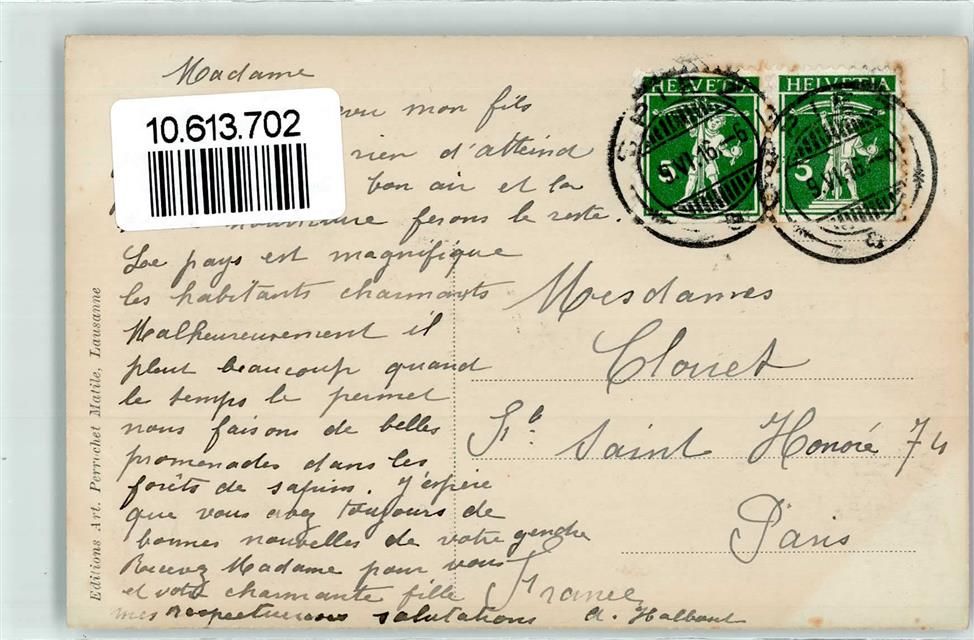 Madame
10.613.702
mon fils
rien d'atteind
bon air et la
nourriture ferons le reste.
Le pays est magnifique
les habitants charmants
Malheureusement il
pleut beaucoup quand
le temps le permet
nous faisons de belles
promenades dans les
forêts de sapins. J'espère
que vous avez toujours de
bonnes nouvelles de votre gendre
Recevez Madame pour vous
et votre charmante fille
mes respectueuses salutations
Editions Art. Perrochet Matile, Lausanne
HELVETIA
5
HELVETIA
5
9.VI.16.-6
9.VI.16.-6
Mesdames
Clouet
Fb. Saint Honoré 74
Paris
France